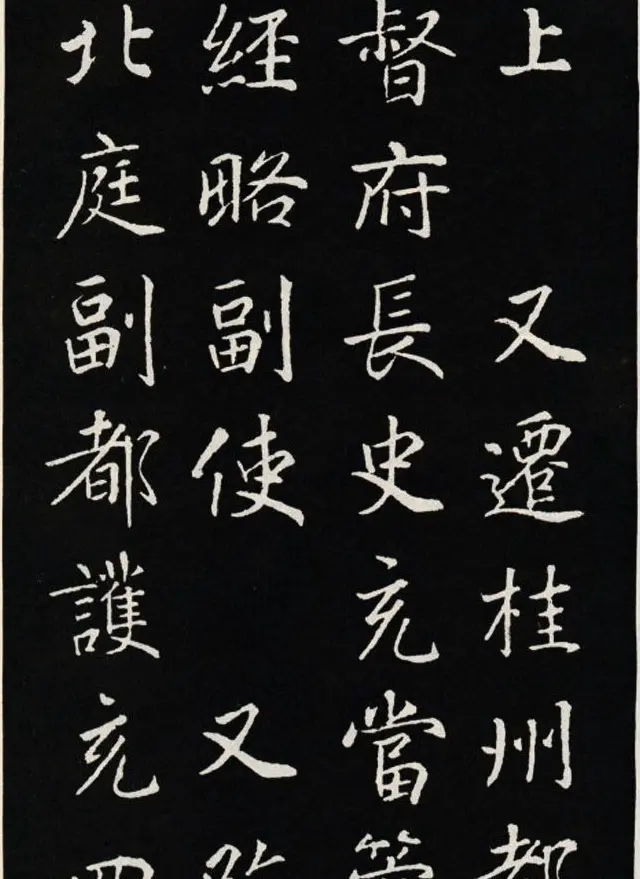 上 又遷桂州都
督府長史充當管
經略副使 又
北庭副都護充四